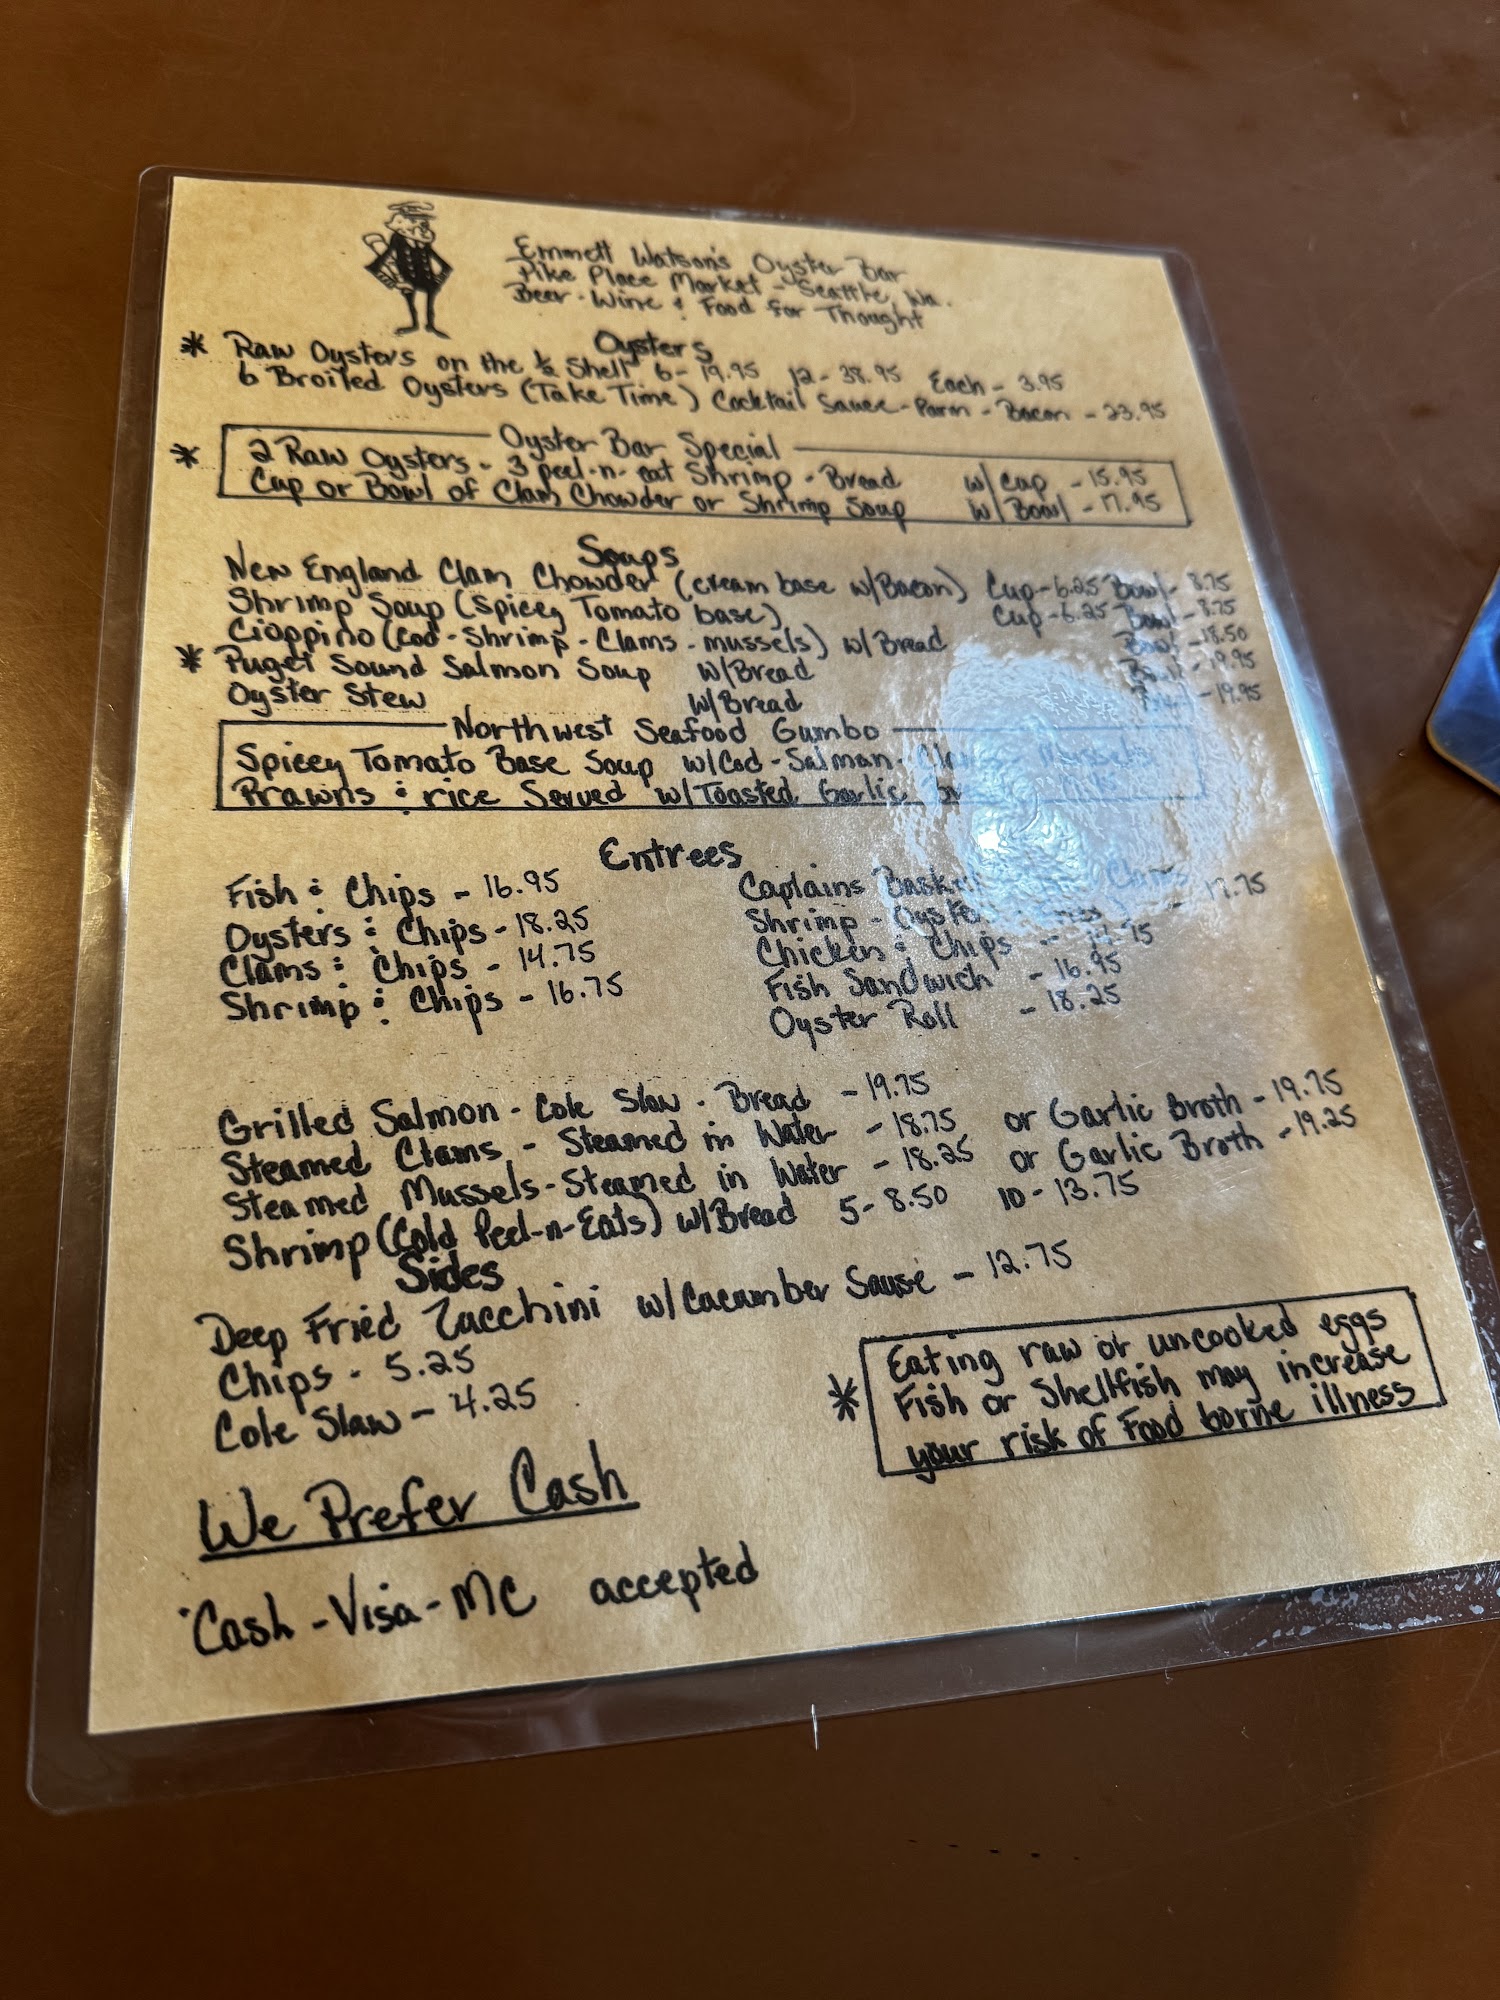 Emmett Watson's Oyster Bar
Pike Place Market - Seattle, Wa.
Beer - Wine & Food for Thought
Oysters
* Raw Oysters on the ½ Shell 6 - 19.95 12 - 38.95 Each - 3.95
6 Broiled Oysters (Take Time) Cocktail Sauce - Parm - Bacon - 23.95
Oyster Bar Special
* 2 Raw Oysters - 3 peel-n-eat Shrimp - Bread w/Cup - 15.95
Cup or Bowl of Clam Chowder or Shrimp Soup w/Bowl - 17.95
Soups
New England Clam Chowder (cream base w/Bacon) Cup - 6.25 Bowl - 8.75
Shrimp Soup (Spicey Tomato base) Cup - 6.25 Bowl - 8.75
Cioppino (Cod - Shrimp - Clams - mussels) w/Bread Bowl - 18.50
* Puget Sound Salmon Soup w/Bread Bowl - 19.95
Oyster Stew w/Bread Bowl - 19.95
Northwest Seafood Gumbo
Spicey Tomato Base Soup w/Cod - Salman -
Prawns & rice Served w/Toasted Garlic
Entrees
Fish & Chips - 16.95
Oysters & Chips - 18.25
Clams & Chips - 14.75
Shrimp & Chips - 16.75
Captains
Shrimp -
Chicken & Chips -
Fish Sandwich - 16.95
Oyster Roll - 18.25
Grilled Salmon - Cole Slaw - Bread - 19.75
Steamed Clams - Steamed in Water - 18.75 or Garlic Broth - 19.75
Steamed Mussels - Steamed in Water - 18.25 or Garlic Broth - 19.25
Shrimp (Cold Peel-n-Eats) w/Bread 5 - 8.50 10 - 13.75
Sides
Deep Fried Zucchini w/Cucumber Sause - 12.75
Chips - 5.25
Cole Slaw - 4.25
* Eating raw or uncooked eggs
Fish or Shellfish may increase
your risk of Food borne illness
We Prefer Cash
Cash - Visa - MC accepted